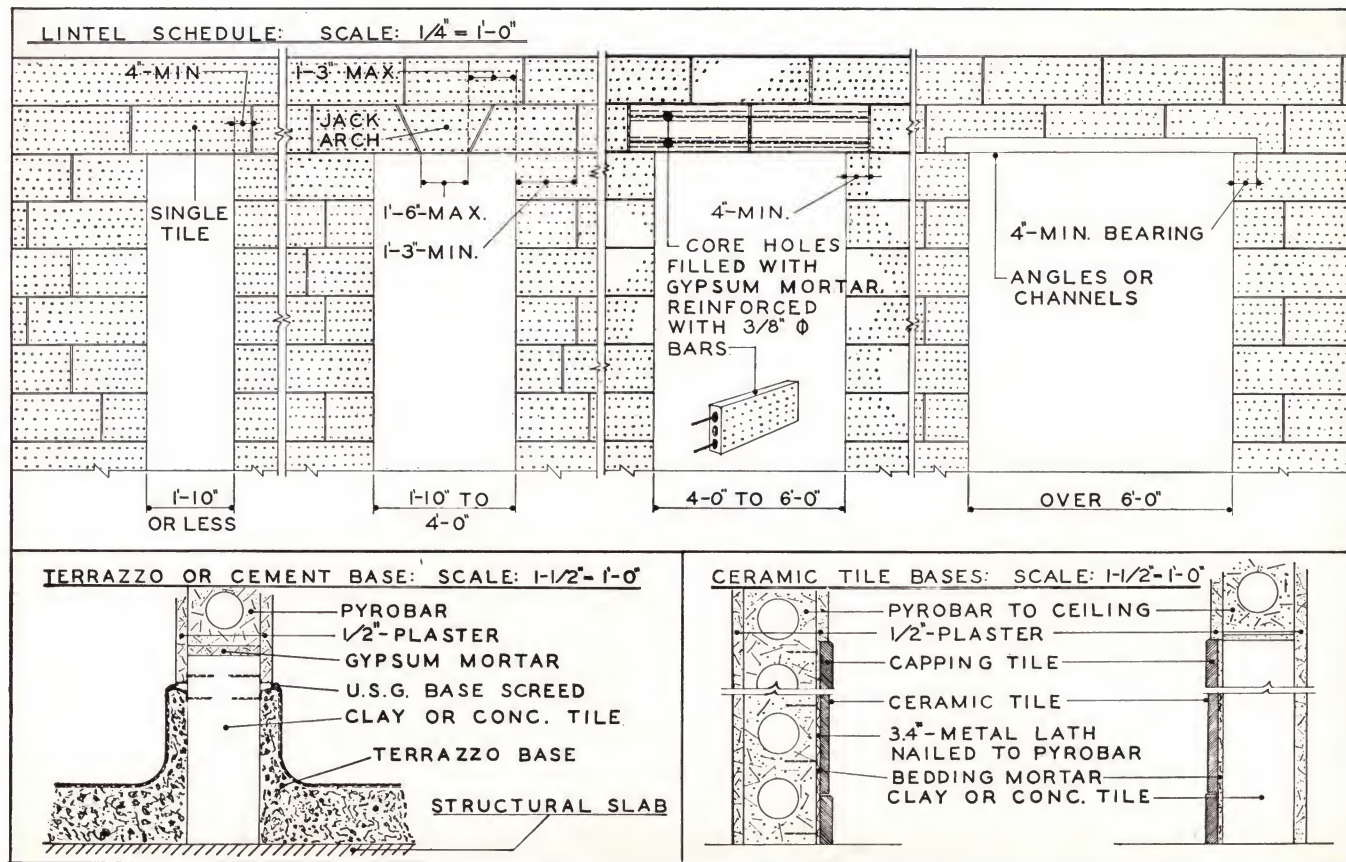 LINTEL SCHEDULE: SCALE: 1/4" = 1'-0"
4"-MIN
SINGLE
TILE
1'-10"
OR LESS
1'-3" MAX.
JACK
ARCH
1'-6"-MAX.
1'-3"-MIN.
1'-10" TO
4'-0"
4"-MIN.
CORE HOLES
FILLED WITH
GYPSUM MORTAR.
REINFORCED
WITH 3/8" Φ
BARS
4-0" TO 6'-0"
4"-MIN. BEARING
ANGLES OR
CHANNELS
OVER 6'-0"
TERRAZZO OR CEMENT BASE: SCALE: 1-1/2"-1'-0"
PYROBAR
1/2"-PLASTER
GYPSUM MORTAR
U.S.G. BASE SCREED
CLAY OR CONC. TILE
TERRAZZO BASE
STRUCTURAL SLAB
CERAMIC TILE BASES: SCALE: 1-1/2"-1'-0"
PYROBAR TO CEILING
1/2"-PLASTER
CAPPING TILE
CERAMIC TILE
3.4"-METAL LATH
NAILED TO PYROBAR
BEDDING MORTAR
CLAY OR CONC. TILE